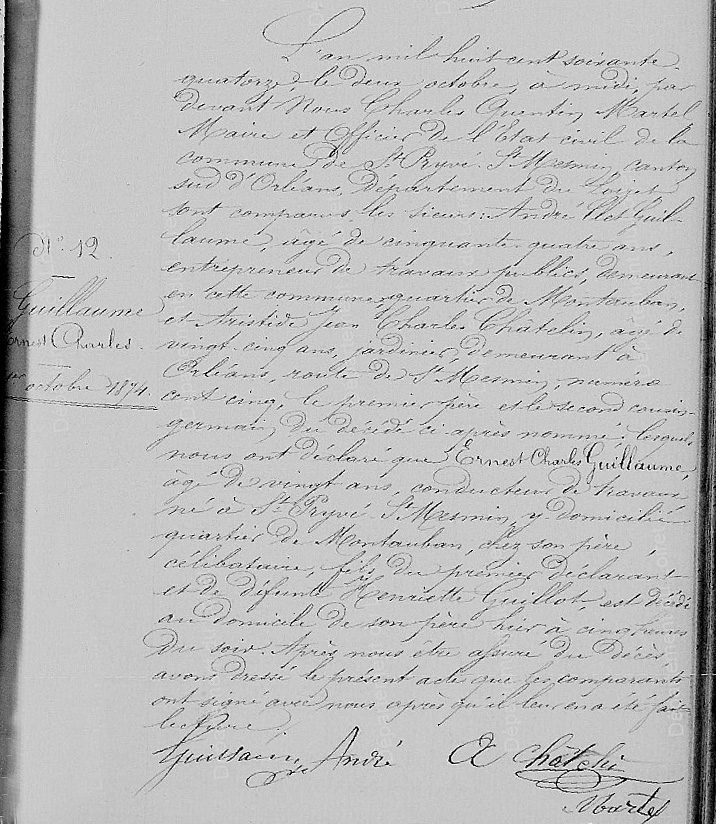 L'an mil huit cent soixante
quatorze, le deux octobre, à midi, par
devant Nous Charles Quentin Martel,
Maire et Officier de l'Etat civil de la
commune de St Pryvé-St Mesmin, canton
sud d'Orléans, Département du Loiret
sont comparus les sieurs: André Guil-
laume, âgé de cinquante-quatre ans,
N° 12.
entrepreneur de travaux publics, demeurant
en cette commune, quartier de Montauban,
Guillaume
et Aristide Jean Charles Châtelin, âgé de
Ernest Charles.
vingt-cinq ans, jardinier, demeurant à
Orléans, route de St Mesmin, numéro
octobre 1874.
cent cinq, le premier père et le second cousin-
germain, du décédé ci-après nommé. Lesquels
nous ont déclaré que Ernest Charles Guillaume,
âgé de vingt ans, conducteur de travaux
né à St Pryvé-St Mesmin, y domicilié
quartier de Montauban, chez son père,
célibataire, fils du premier déclarant
et de défunte Henriette Guillot, est décédé
au domicile de son père hier à cinq heures
du soir. Après nous être assuré du décès,
avons dressé le présent acte que les comparants
ont signé avec nous après qu'il leur en a été fait
lecture.
Guillaume André A Châtelin
Martel